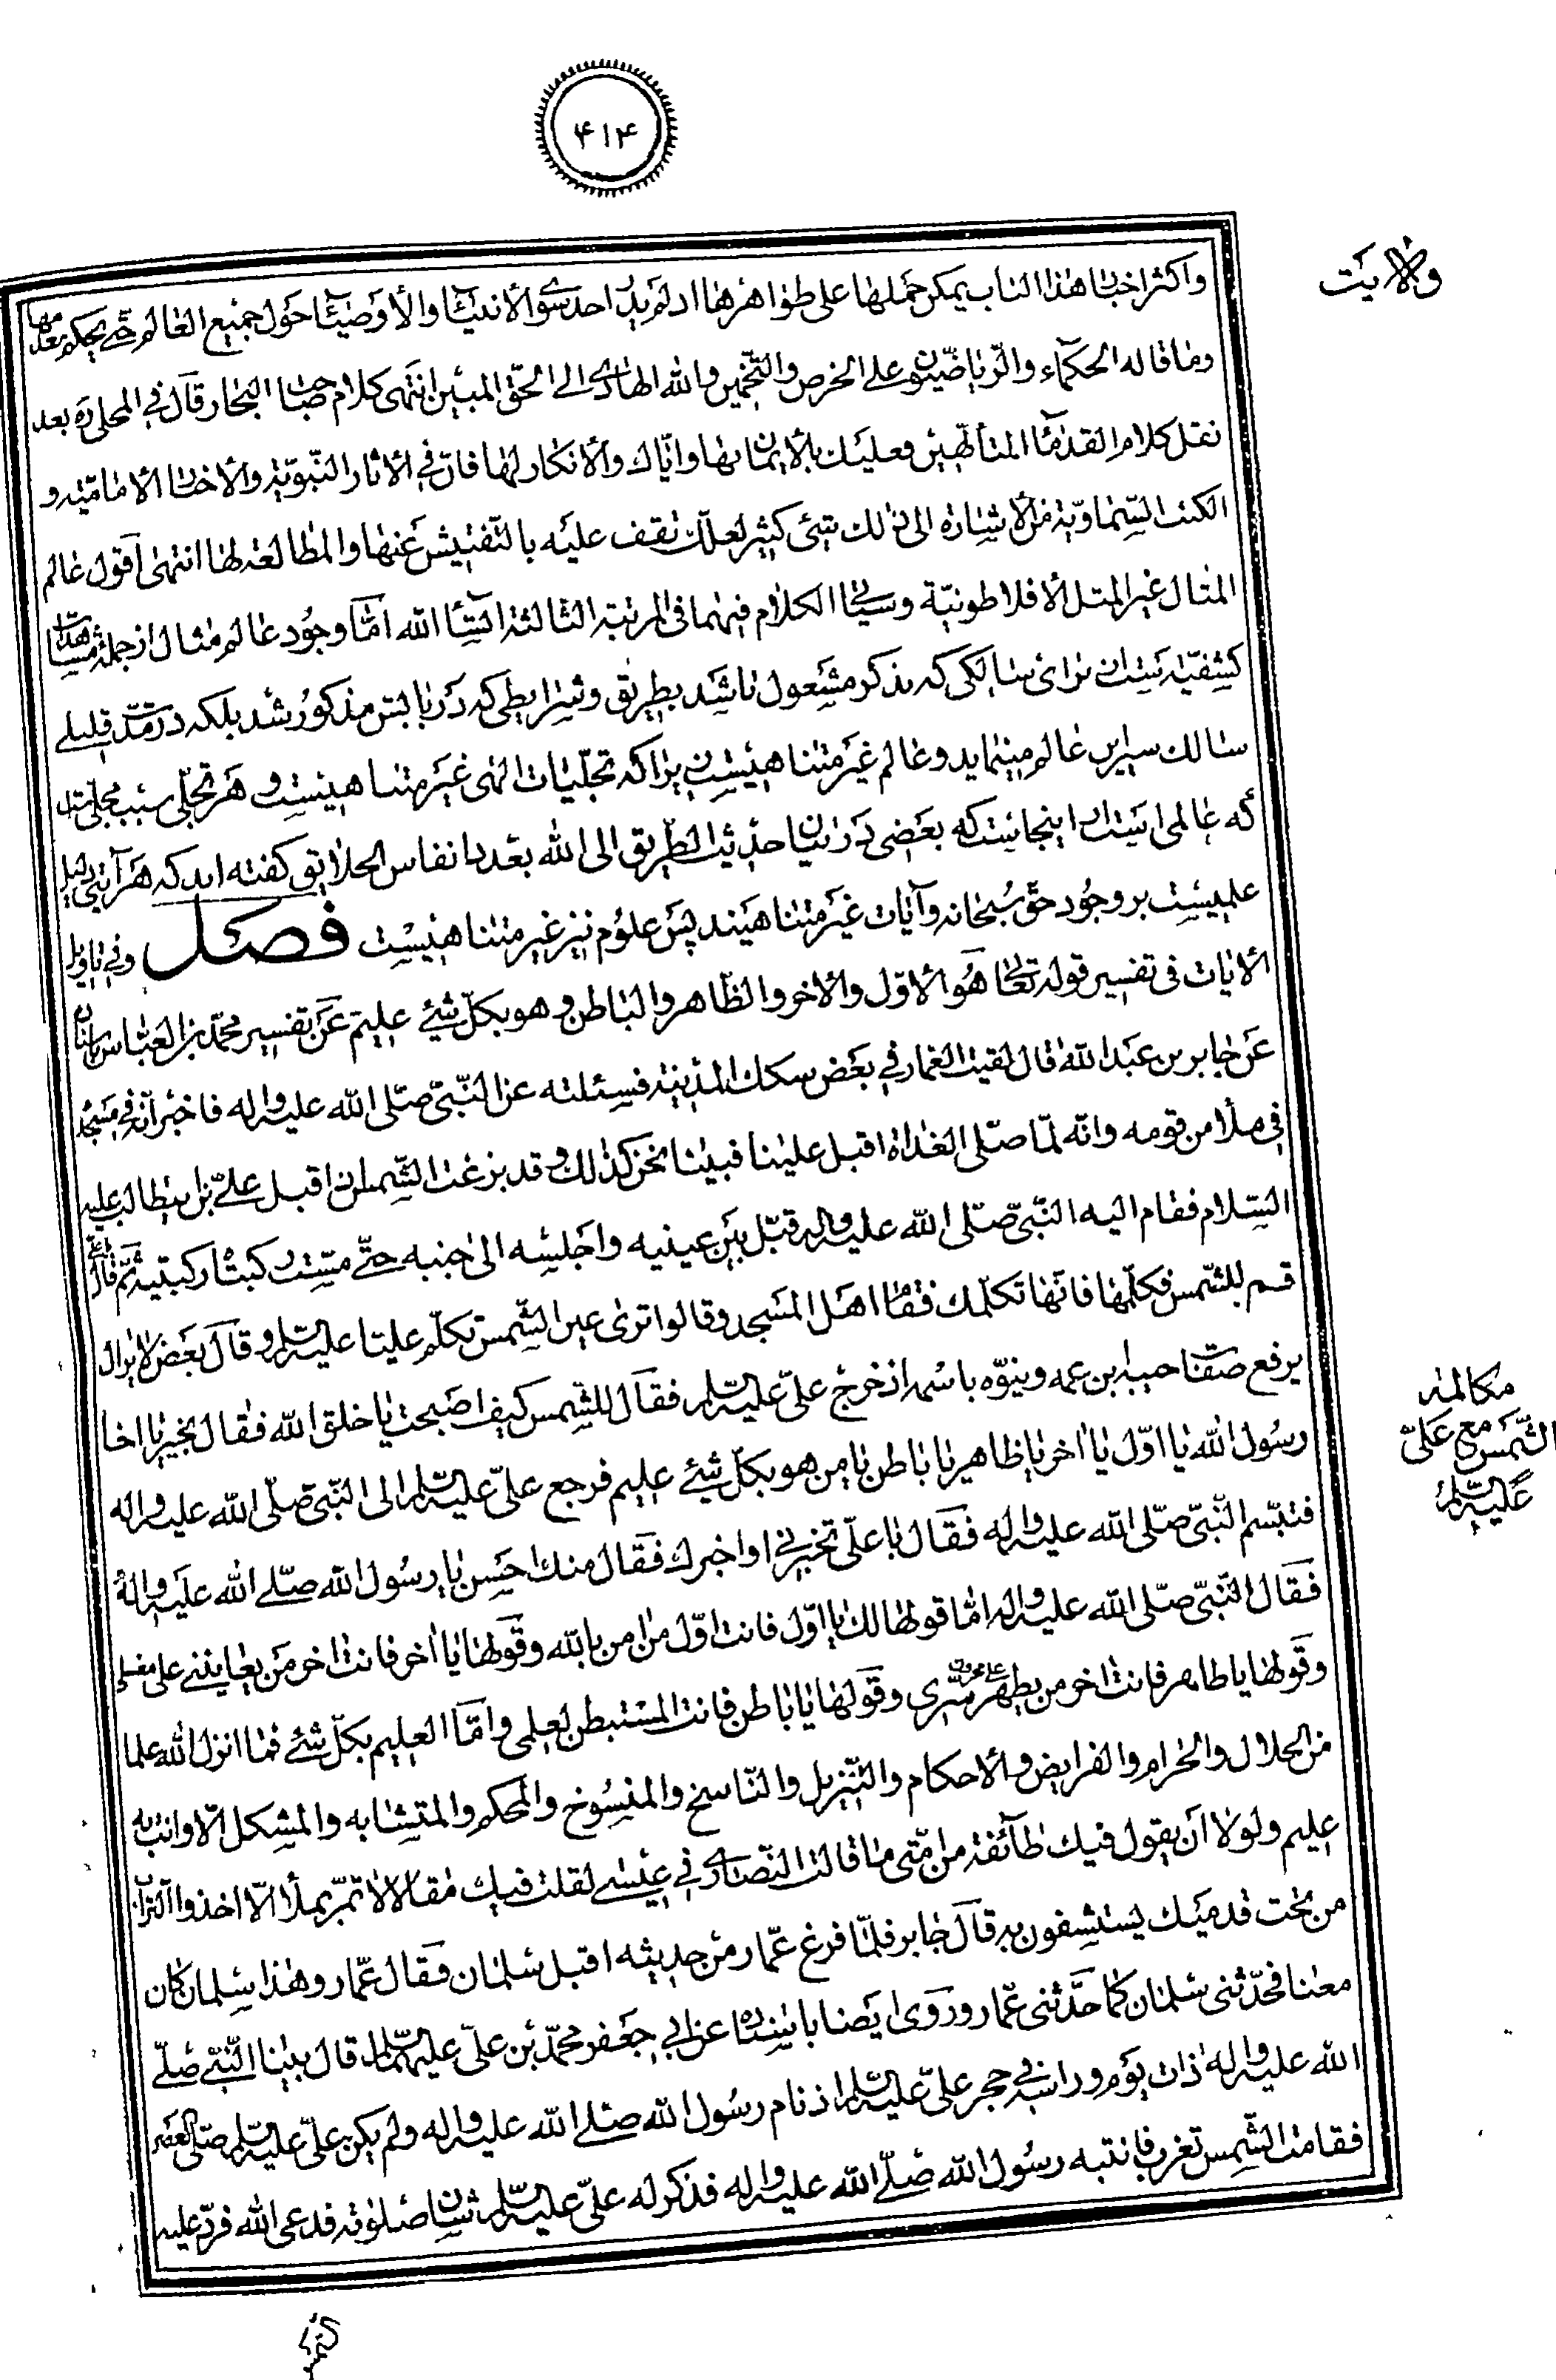 ۴۱۴
ولایت
واكثر اخبار هذا الباب يمكن حملها على ظواهرها اذ لم يدر احد سوى الانبياء والاوصياء حول جميع العالم حتى يحكم بعدمها
وما قاله الحكماء والرياضيون على الخرص والتخمين والله الهادى الى الحق المبين انتهى كلام صاحب البحار قال فى المحلى ره بعد
نقل كلام القدماء المتألهين وعليك بالايمان بها واياك والانكار لها فان فى الاثار النبوية والاخبار الامامية و
الكتب السماوية من الاشارة الى ذلك شىء كثير لعلك تقف عليه بالتفتيش عنها والمطالعة لها انتهى اقول عالم
المثال غير المثل الافلاطونية وسياتى الكلام فيهما فى المرتبة الثالثة انشاء الله اما وجود عالم مثال از جمله مشاهدات
كشفيه است براى سالكى كه بذكر مشغول باشد بطريق وشرايطى كه در بابش مذكور شد بلكه در مدت قليلى
سالك سير اين عالم مينمايد وعالم غير متناهيست زيرا كه تجليات الهى غير متناهيست وهر تجلى سبب
كه عالمى است اينجاست كه بعضى در بيان حديث الطريق الى الله بعدد انفاس الخلايق گفته اند كه هر آيتى دليل
علميست بر وجود حق سبحانه وآيات غير متناهيند پس علوم نيز غير متناهيست فصل وفى تاويل
الايات فى تفسير قوله تعالى هو الاول والاخر والظاهر والباطن وهو بكل شئ عليم عن تفسير محمد بن العباس باسناده
عن جابر بن عبد الله قال لقيت العمار فى بعض سكك المدينة فسئلته عن النبى صلى الله عليه واله فاخبر انه فى مسجده
فى ملأ من قومه وانه لما صلى الغداة اقبل علينا فبينا نحن كذلك وقد بزغت الشمس اذ اقبل على بن ابيطالب عليه
السلام فقام اليه النبى صلى الله عليه واله قبل بين عينيه واجلسه الى جنبه حتى مست ركبتاه ركبتيه ثم قال يا على
قم للشمس فكلمها فانها تكلمك فقام اهل المسجد وقالوا ترى عين الشمس تكلم عليا عليه السلم وقال بعض لا يزال
يرفع حسيسة ابن عمه وينوه باسمه اذ خرج على عليه السلم فقال للشمس كيف اصبحت يا خلق الله فقال بخير يا اخا
رسول الله يا اول يا اخر يا ظاهر يا باطن يا من هو بكل شئ عليم فرجع على عليه السلم الى النبى صلى الله عليه واله
فتبسم النبى صلى الله عليه واله فقال يا على تخبرنى او اخبرك فقال منك احسن يا رسول الله صلى الله عليه واله
فقال النبى صلى الله عليه واله اما قولها لك يا اول فانت اول من امن بالله وقولها يا اخر فانت اخر من يعاينني على مغسلى
وقولها يا ظاهر فانت اخر من يظهر على مخزون سرى وقولها يا باطن فانت المستبطن لعلمى واما العليم بكل شئ فما انزل الله علما
من الحلال والحرام والفرايض والاحكام والتنزيل والناسخ والمنسوخ والمحكم والمتشابه والمشكل الا وانت به
عليم ولولا ان يقول فيك طائفة من امتى ما قالت النصارى فى عيسى لقلت فيك مقالا لا تمر بملأ الا اخذوا التراب
من تحت قدميك يستشفون به قال جابر فلما فرغ عمار من حديثه اقبل سلمان فقال عمار وهذا سلمان كان
معنا فحدثنى سلمان كما حدثنى عمار وروى ايضا باسناده عن ابى جعفر محمد بن على عليهما السلم قال بينا النبى صلى
الله عليه واله ذات يوم وراسه فى حجر على عليه السلم اذ نام رسول الله صلى الله عليه واله ولم يكن على عليه السلم صلى العصر
فقامت الشمس تغرب فانتبه رسول الله صلى الله عليه واله فذكر له على عليه السلم شان صلوته فدعى الله فرد عليه
مكالمه
الشمس مع على
عليه السلم
الشمس